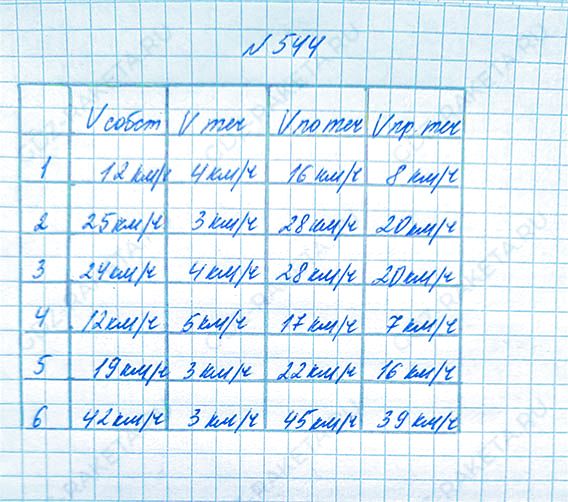 N 544
V собст V теч V по теч V пр. теч
1 12 км/ч 4 км/ч 16 км/ч 8 км/ч
2 25 км/ч 3 км/ч 28 км/ч 20 км/ч
3 24 км/ч 4 км/ч 28 км/ч 20 км/ч
4 12 км/ч 5 км/ч 17 км/ч 7 км/ч
5 19 км/ч 3 км/ч 22 км/ч 16 км/ч
6 42 км/ч 3 км/ч 45 км/ч 39 км/ч